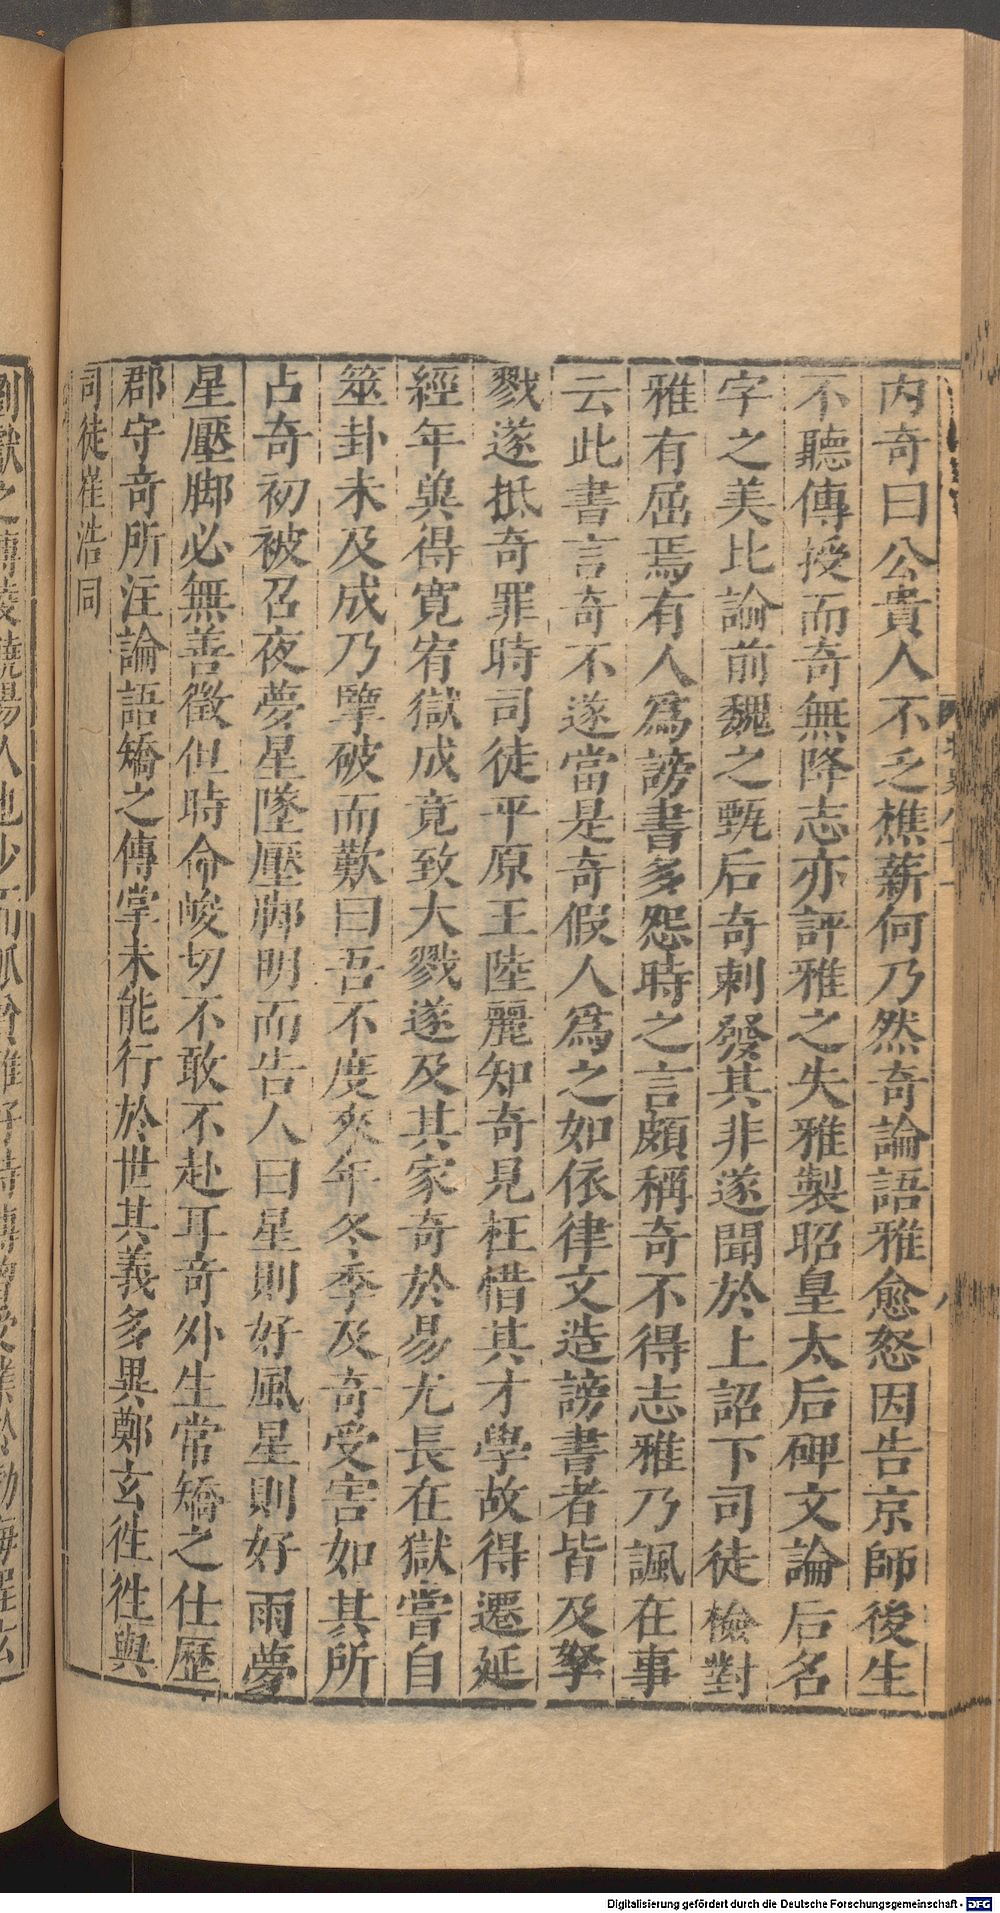 內奇曰公貴人不乏樵薪何乃然奇論語雅愈怒因告京師後生
不聽傳授而奇無降志亦評雅之失雅製昭皇太后碑文論后名
字之美比論前魏之甄后奇刺發其非遂聞於上詔下司徒檢對
雅有屈焉有人爲謗書多怨時之言頗稱奇不得志雅乃諷在事
云此書言奇不遂當是奇假人爲之如依律文造謗書者皆及孥
戮遂抵奇罪時司徒平原王陸麗知奇見枉惜其才學故得遷延
經年兾得寬宥獄成竟致大戮遂及其家奇於易尤長在獄嘗自
筮卦未及成乃擥破而歎曰吾不度來年冬季及奇受害如其所
占奇初被召夜夢星墜壓脚明而告人曰星則好風星則好雨夢
星壓脚必無善徵但時命峻切不敢不赴耳奇外生常矯之仕歷
郡守奇所注論語矯之傳掌未能行於世其義多異鄭玄徃徃與
司徒崔浩同
劉獻之博陵饒陽人也少而孤貧雅好詩傳曾受業於勃海程玄
Digitalisierung gefördert durch die Deutsche Forschungsgemeinschaft - DFG